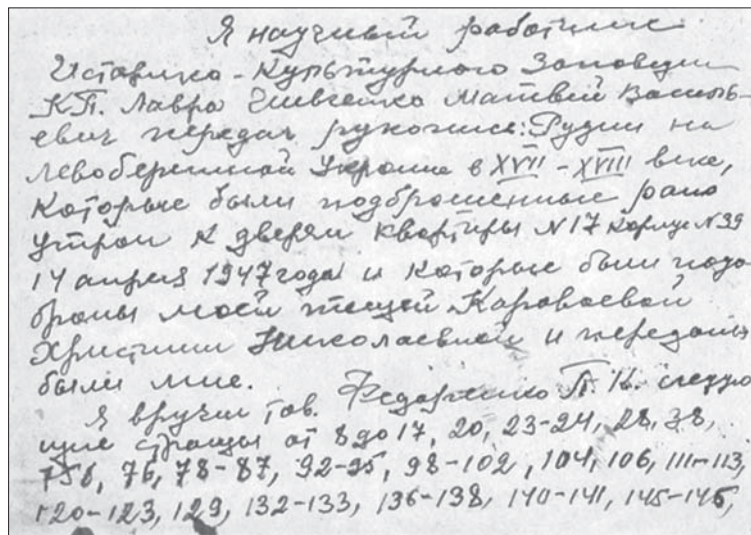 Я научный работник
Историко-Культурного Заповедн
К.П. Лавра Шевченко Матвей Василь-
евич передал рукопись: Рудни на
левобережной Украине в XVII-XVIII веке,
Которые были подброшенные рано
утром к дверям квартиры N17 Корпус N39
14 апреля 1947 года и которые были подо-
браны моей тещей Караваевой
Христиной Николаевной и переданы
были мне.
Я вручил тов. Федоренко П.К. следую
щие страницы от 8 до 17, 20, 23-24, 28, 38,
76, 78-87, 92-95, 98-102, 104, 106, 111-113,
120-123, 129, 132-133, 136-138, 140-141, 145-146,